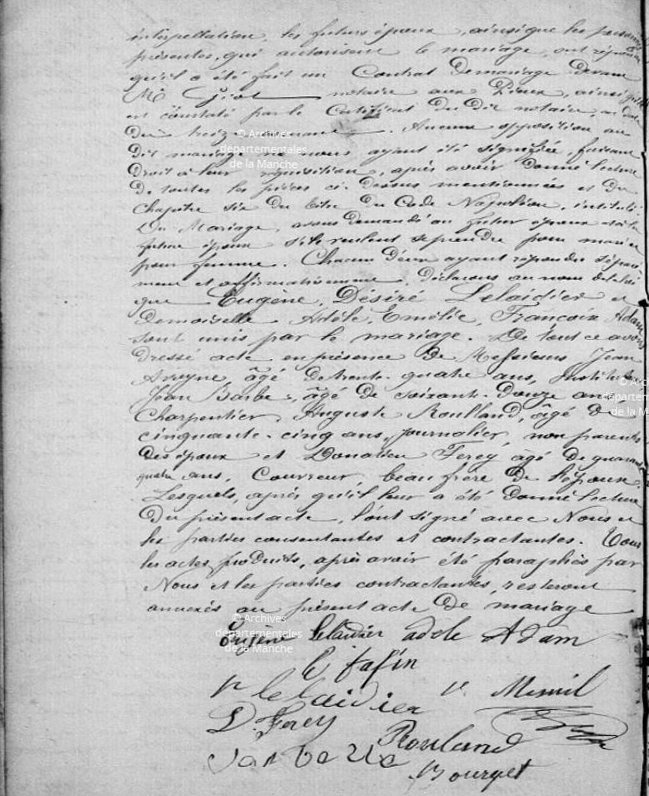 interpellation, les futurs époux, ainsi que les personnes
présentes, qui autorisent le mariage, ont répondu
qu'il a été fait un Contrat de mariage devant
Me notaire aux Pieux, ainsi qu'il
est constaté par le Certificat du dit notaire, en date
du treize courant. Aucune opposition au
dit mariage ne nous ayant été signifiée, faisant
Droit à leur réquisition, après avoir donné lecture
De toutes les pièces ci-dessus mentionnées et du
Chapitre six du titre du Code Napoléon, intitulé
Du Mariage, avons demandé au futur époux et à la
future épouse s'ils veulent se prendre pour mari et
pour femme. Chacun d'eux ayant répondu séparé-
ment et affirmativement, déclarons au nom de la loi
que Eugène, Désiré Lelaidier et
Demoiselle Adèle, Emélie, Françoise Adam
sont unis par le mariage. De tout ce avons
dressé acte en présence de Messieurs Jean
âgé de trente-quatre ans,
Jean Barbe, âgé de soixante-Douze ans
Charpentier, Auguste Roulland, âgé de
cinquante-cinq ans, journalier, non parents
des époux et Donatien Ferey âgé de quarante
quatre ans, Couvreur, beau frère de l'époux.
Lesquels, après qu'il leur a été donné lecture
Du présent acte, l'ont signé avec Nous et
les parties consentantes et contractantes. Tous
les actes produits, après avoir été paraphés par
Nous et les parties contractantes, resteront
annexés au présent acte de mariage
Eugène Lelaidier adèle Adam
Ve lelaidier Ve Mesnil
D. Ferey
Jan barbe Rouland
Bourget
© Archives
départementales
de la Manche
© Archives
départementales
de la Manche